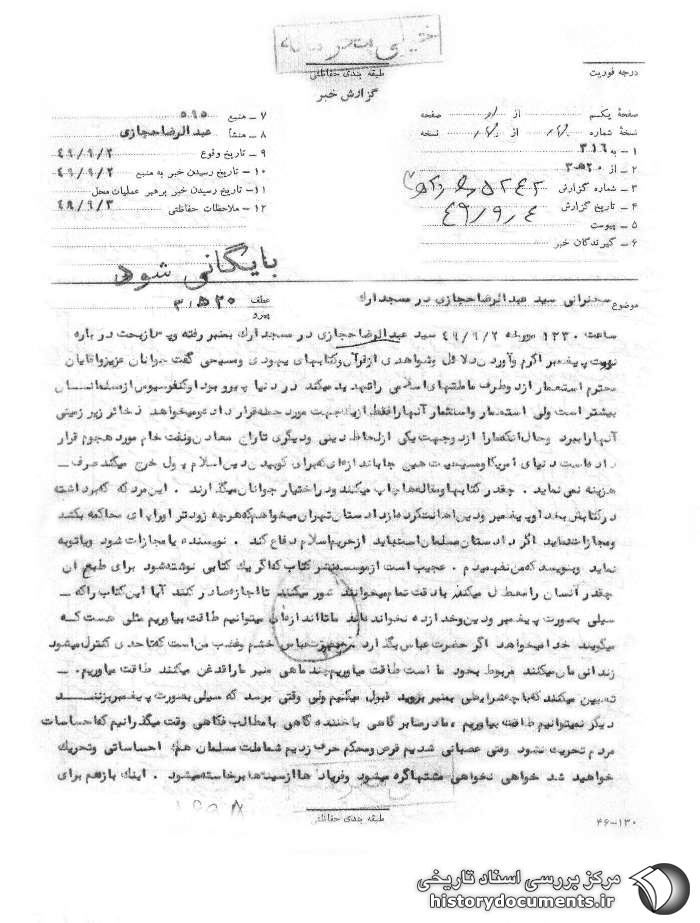 خیلی محرمانه
طبقه بندی حفاظتی
گزارش خبر
درجه فوریت
صفحهٔ یکم از صفحه
نسخهٔ شماره از نسخه
۱ – به ۳۱۶
۲ – از ۲۰ه۳
۳ – شماره گزارش
۴ – تاریخ گزارش ۴۹/۹/۴
۵ – پیوست
۶ – گیرندگان خبر
۷ – منبع ۵۹۵
۸ – منشأ عبدالرضاحجازی
۹ – تاریخ وقوع ۴۹/۹/۲
۱۰ – تاریخ رسیدن خبر به منبع ۴۹/۹/۲
۱۱ – تاریخ رسیدن خبر برهبر عملیات محل
۱۲ – ملاحظات حفاظتی ۴۹/۹/۳
بایگانی شود
موضوع سخنرانی سید عبدالرضاحجازی در مسجد ارك
عطف ۲۰ه۳
پیرو
ساعت ۱۲۳۰ مورخه ۴۹/۹/۲ سید عبدالرضاحجازی در مسجد ارك بمنبر رفته و پس از بحث در باره
نبوت پیغمبر اکرم و آوردن دلائل وشواهدی از قرآن وکتابهای یهودی و مسیحی گفت جوانان عزیز و آقایان
محترم استعمار از دو طرف ما ملتهای اسلامی را تهدید میکند در دنیا پیرو بودا وکنفوسیوس از مسلمانان
بیشتر است ولی استعمار واستثمار آنها را فقط از یك جهت مورد حمله قرار داده و میخواهد ذخائر زیر زمینی
آنها را ببرد وحال آنکه ما را از دو جهت یکی از لحاظ دینی ودیگری تاراج معادن ونفت خام مورد هجوم قرار
داده است دنیای آمریکا و مسیحیت همین جا باندازه ای که برای کوبیدن دین اسلام پول خرج میکند صرف –
هزینه نمی نماید . چقدر کتابها و مقاله ها چاپ میکنند و در اختیار جوانان میگذارند . این مردکه که برداشته
در کتابش بخدا و پیغمبر ودین اهانت کرده ما از دادستان تهران میخواهم که هرچه زودتر او را پای محاکمه بکشد
ومجازات نماید اگر دادستان مسلمان است باید از حریم اسلام دفاع کند . نویسنده یا مجازات شود ویا توبه
نماید وبنویسد که من نفهمیدم . عجیب است از موسسه نشر کتاب که اگر یك کتابی نوشته شود برای طبع آن
چقدر انسان را معطل میکنند با دقت تمام میخوانند شور میکنند تا اجازه صادر کنند آیا این کتاب را که –
سیلی بصورت پیغمبر ودین وخدا زده نخوانده اند ما تا اندازه ای میتوانیم طاقت بیاوریم مثلی هست که
میگویند خدا میخواهد اگر حضرت عباس بگذارد خشم وغضب من است که تا حدی کنترل میشود
زندانی مان میکنند مربوط بخود ما است طاقت میاوریم چند ماهی منبر ما را قدغن میکنند طاقت میاوریم . –
تعیین میکنند که با چه شرایطی بمنبر بروید قبول میکنیم ولی وقتی برسد که سیلی بصورت پیغمبر بزنند
دیگر نمیتوانیم طاقت بیاوریم ، ما در منابر گاهی با خنده گاهی با مطالب فکاهی وقت میگذرانیم که احساسات
مردم تحریك نشود وقتی عصبانی شدیم قرص ومحکم حرف زدیم شما ملت مسلمان هم احساساتی وتحریك
خواهید شد خواهی نخواهی مشتها گره میشود وفریاد ها از سینه ها برخاسته میشود . اینك باز هم برای
طبقه بندی حفاظتی
۴۶–۱۳۰
مرکز بررسی اسناد تاریخی
historydocuments.ir